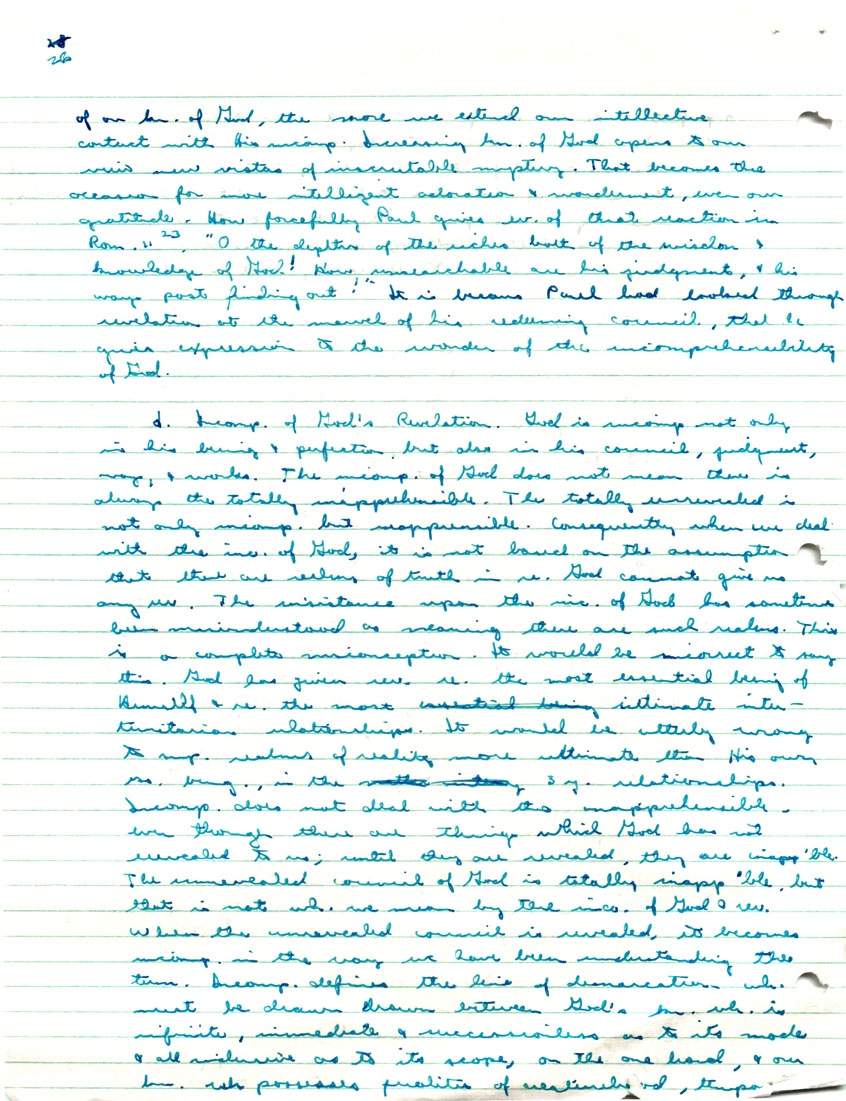 26
of our kn. of God, the more we extend our intellective
contact with His incomp. Increasing kn. of God opens to our
view new vistas of inscrutable mystery. That becomes the
occasion for more intelligent adoration & wonderment, even our
gratitude. How forcefully Paul gives ev. of that reaction in
Rom. 11 23. "O the depths of the riches both of the wisdom &
knowledge of God! How unsearchable are his judgments, & his
ways past finding out!" It is because Paul had looked through
revelation at the marvel of his redeeming council, that he
gives expression to the wonder of the incomprehensibility
of God.
d. Incomp. of God's Revelation. God is incomp not only
in his being & perfection, but also in his council, judgment,
ways, & works. The incomp. of God does not mean there is
always the totally inapprehensible. The totally unrevealed is
not only incomp. but inapprensible. Consequently when we deal
with the inc. of God, it is not based on the assumption
that there are realms of truth in re. God cannot give us
any rev. The insistance upon the inc. of God has sometimes
been misunderstood as meaning there are such realms. This
is a complete misconception. It would be incorrect to say
this. God has given rev. re. the most essential being of
Himself & re. the most essential being ultimate inter-
trinitarian relationships. It would be utterly wrong
to sup. realms of reality more ultimate than His own
being, in the 3 relationships.
Incomp. does not deal with the inapprehensible -
even though there are things which God has not
revealed to us; until they are revealed, they are inapp'ble.
The unrevealed council of God is totally inapp'ble, but
that is not wh. we mean by the inco. of God's rev.
When the unrevealed council is revealed, it becomes
incomp. in the way we have been understanding the
term. Incomp. defines the line of demarcation wh.
must be drawn drawn between God's kn. wh. is
infinite, immediate & successionless as to its mode
& all inclusive as to its scope, on the one hand, & our
kn. wh possesses qualities of creaturehood, tempo